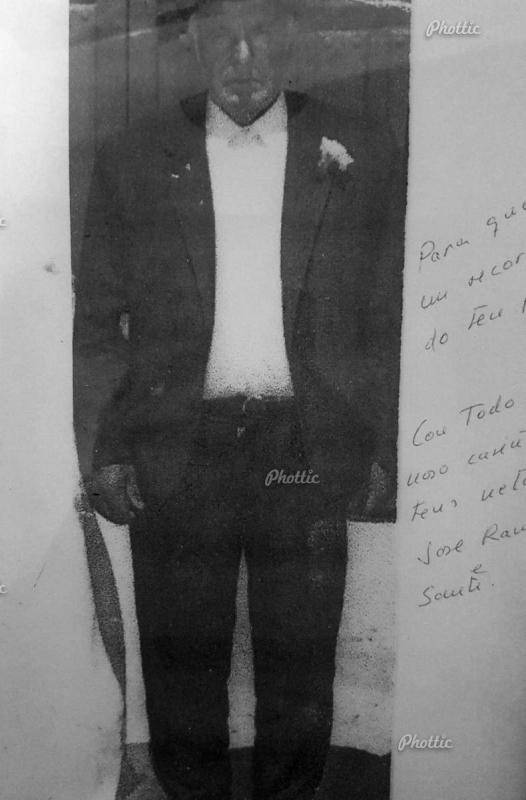 Phottic
Para que
un recor
do teu
Con Todo
noso cariñ
teus neto
Jose Ram
Santi.
Phottic
Phottic